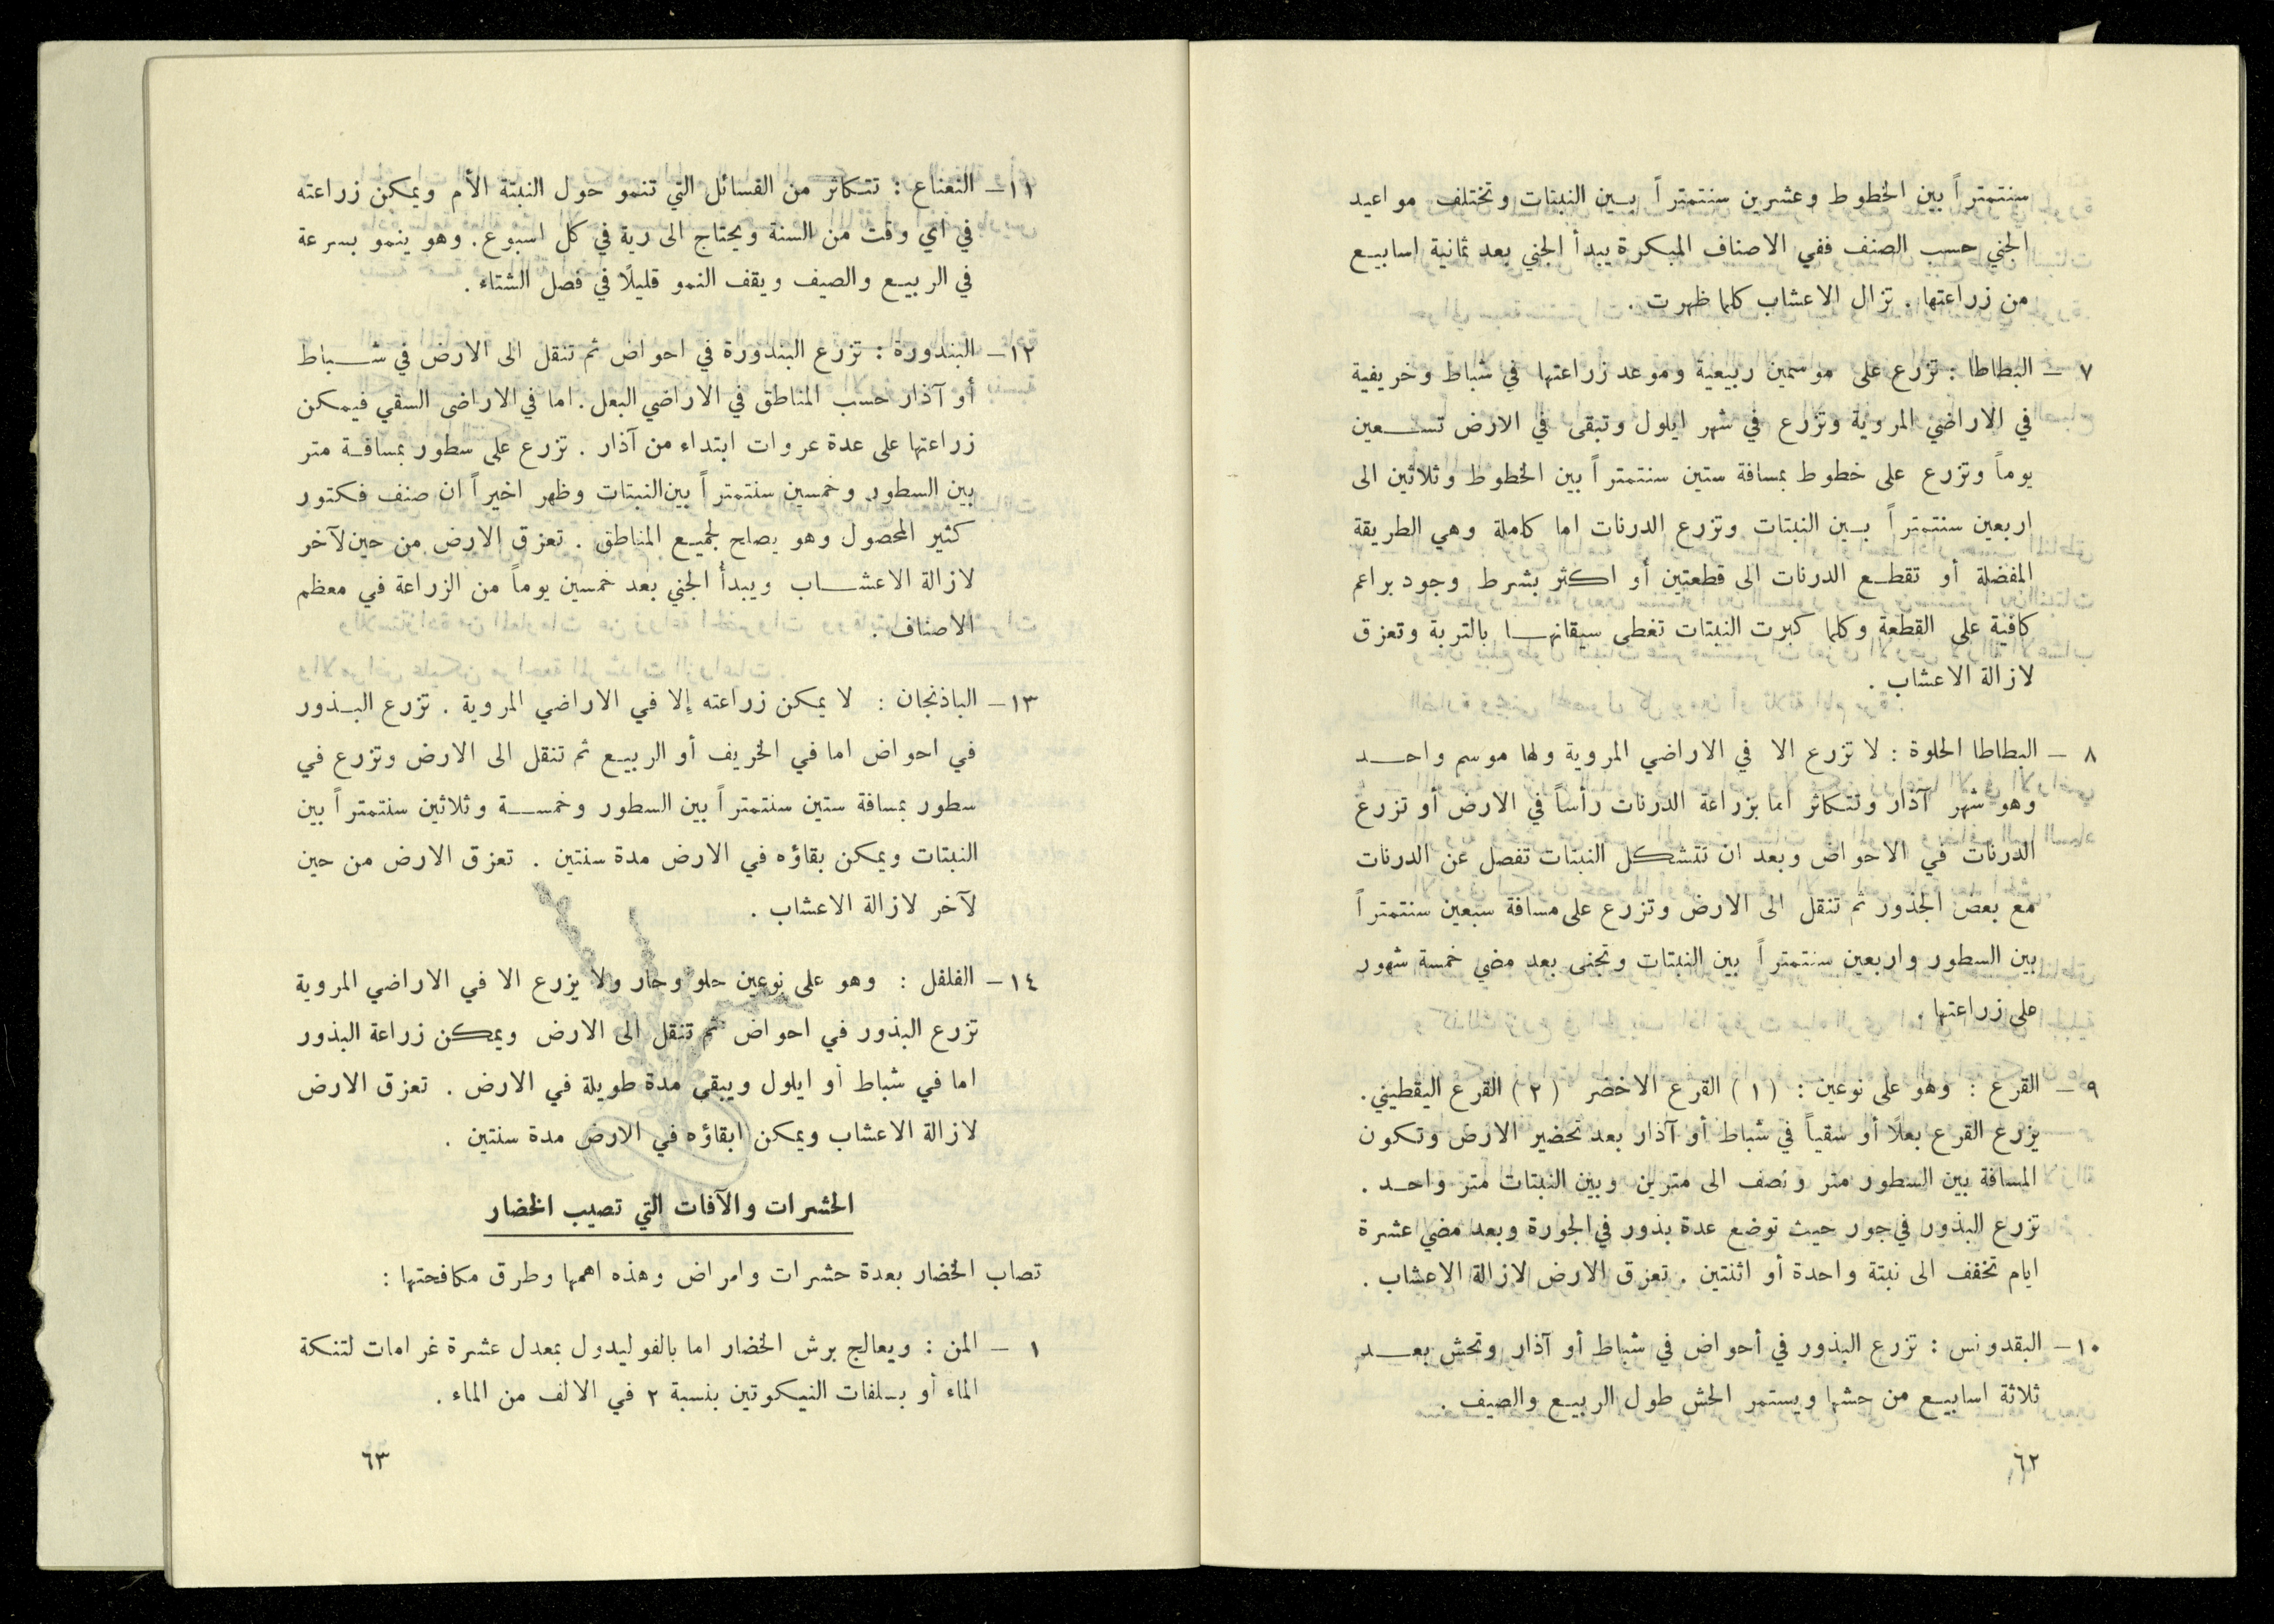 سنتمتراً بين الخطوط وعشرين سنتمتراً بين النبتات وتختلف مواعيد
الجني حسب الصنف ففي الاصناف المبكرة يبدأ الجني بعد ثمانية اسابيع
من زراعتها . تزال الاعشاب كلما ظهرت .
٧ – البطاطا : تزرع على موسمين ربيعية وموعد زراعتها في شباط وخريفية
في الاراضي المروية وتزرع في شهر ايلول وتبقى في الارض تسعين
يوماً وتزرع على خطوط بمسافة ستين سنتمتراً بين الخطوط وثلاثين الى
اربعين سنتمتراً بين النبتات وتزرع الدرنات اما كاملة وهي الطريقة
المفضلة أو تقطع الدرنات الى قطعتين أو اكثر بشرط وجود براعم
كافية على القطعة وكلما كبرت النبتات تغطى سيقانها بالتربة وتعزق
لازالة الاعشاب .
٨ – البطاطا الحلوة : لا تزرع الا في الاراضي المروية ولها موسم واحد
وهو شهر آذار وتتكاثر اما بزراعة الدرنات رأساً في الارض أو تزرع
الدرنات في الاحواض وبعد ان تتشكل النبتات تفصل عن الدرنات
مع بعض الجذور ثم تنقل الى الارض وتزرع على مسافة سبعين سنتمتراً
بين السطور واربعين سنتمتراً بين النبتات وتجنى بعد مضي خمسة شهور
على زراعتها .
٩ – القرع : وهو على نوعين : (١) القرع الاخضر (٢) القرع اليقطيني.
يزرع القرع بعلًا أو سقياً في شباط أو آذار بعد تحضير الارض وتكون
المسافة بين السطور متر ونصف الى مترين وبين النبتات متر واحد .
تزرع البذور في جور حيث توضع عدة بذور في الجورة وبعد مضي عشرة
ايام تخفف الى نبتة واحدة أو اثنتين . تعزق الارض لازالة الاعشاب .
١٠– البقدونس : تزرع البذور في أحواض في شباط أو آذار وتحش بعد
ثلاثة اسابيع من حشها ويستمر الحش طول الربيع والصيف .
٦٢
١١– النعناع : تتكاثر من الفسائل التي تنمو حول النبتة الأم ويمكن زراعته
في اي وقت من السنة ويحتاج الى رية في كل اسبوع. وهو ينمو بسرعة
في الربيع والصيف ويقف النمو قليلًا في فصل الشتاء .
١٢– البندورة : تزرع البندورة في احواض ثم تنقل الى الارض في شباط
أو آذار حسب المناطق في الاراضي البعل. اما في الاراضى السقي فيمكن
زراعتها على عدة عروات ابتداء من آذار . تزرع على سطور بمسافة متر
بين السطور وخمسين سنتمتراً بين النبتات وظهر اخيراً ان صنف فكتور
كثير المحصول وهو يصلح لجميع المناطق . تعزق الارض من حين لآخر
لازالة الاعشاب ويبدأ الجني بعد خمسين يوماً من الزراعة في معظم
الاصناف .
١٣– الباذنجان : لا يمكن زراعته إلا في الاراضي المروية . تزرع البذور
في احواض اما في الخريف أو الربيع ثم تنقل الى الارض وتزرع في
سطور بمسافة ستين سنتمتراً بين السطور وخمسة وثلاثين سنتمتراً بين
النبتات ويمكن بقاؤه في الارض مدة سنتين . تعزق الارض من حين
لآخر لازالة الاعشاب .
١٤– الفلفل : وهو على نوعين حلو وحار ولا يزرع الا في الاراضي المروية
تزرع البذور في احواض ثم تنقل الى الارض ويمكن زراعة البذور
اما في شباط أو ايلول ويبقى مدة طويلة في الارض . تعزق الارض
لازالة الاعشاب ويمكن ابقاؤه في الارض مدة سنتين .
الحشرات والآفات التي تصيب الخضار
تصاب الخضار بعدة حشرات وامراض وهذه اهمها وطرق مكافحتها :
١ – المن : ويعالج برش الخضار اما بالفوليدول بمعدل عشرة غرامات لتنكة
الماء أو بسلفات النيكوتين بنسبة ٢ في الالف من الماء .
٦٣